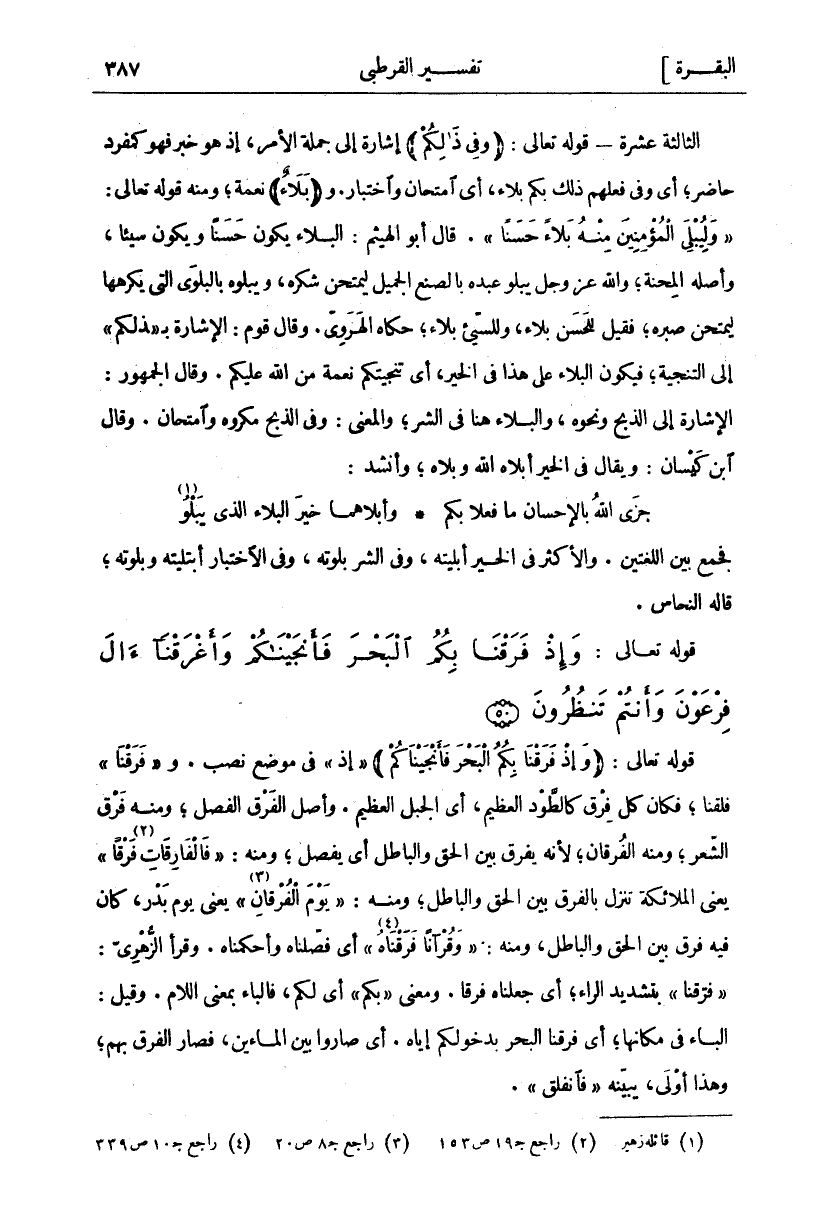 البقـــرة ] تفســـير القرطبى ٣٨٧
الثالثة عشرة — قوله تعالى : ﴿ وَفِى ذَٰلِكُمْ ﴾ إشارة إلى جملة الأمر، إذ هو خبر فهو كمفرد
حاضر؛ أى وفى فعلهم ذلك بكم بلاء، أى ٱمتحان وٱختبار. و ﴿ بَلَاءٌ ﴾ نعمة؛ ومنه قوله تعالى:
« وَلِيُبْلِىَ الْمُؤْمِنِينَ مِنْـهُ بَلَاءً حَسَنًا » . قال أبو الهيثم : البـلاء يكون حَسَنًا ويكون سيئا ،
وأصله المِحنة؛ والله عز وجل يبلو عبده بالصنع الجميل ليمتحن شكره، ويبلوه بالبلوَى التى يكرهها
ليمتحن صبره؛ فقيل للحَسَن بلاء، وللسيّئ بلاء؛ حكاه الهَرَوِىّ. وقال قوم : الإشارة بـ«ـذلكم»
إلى التنجية؛ فيكون البلاء على هذا فى الخير، أى تنجيتكم نعمة من الله عليكم . وقال الجمهور :
الإشارة إلى الذبح ونحوه ، والبـلاء هنا فى الشر؛ والمعنى : وفى الذبح مكروه وٱمتحان . وقال
ٱبن كَيْسان : ويقال فى الخير أبلاه الله وبلاه ؛ وأنشد :
جزَى اللهُ بالإحسان ما فعلا بكم * وأبلاهمـا خيرَ البلاء الذى يَبْلُو (١)
فجمع بين اللغتين . والأكثر فى الخـير أبليته ، وفى الشر بلوته ، وفى الٱختبار ٱبتليته وبلوته ؛
قاله النحاس .
قوله تعـالى : وَإِذْ فَرَقْنَـا بِكُمُ ٱلْبَحْرَ فَأَنجَيْنَـٰكُمْ وَأَغْرَقْنَآ ءَالَ
فِرْعَوْنَ وَأَنتُمْ تَنظُرُونَ ٥٠
قوله تعالى : ﴿ وَإِذْ فَرَقْنَا بِكُمُ الْبَحْرَ فَأَنْجَيْنَاكُمْ ﴾ « إذ » فى موضع نصب . و « فَرَقْنَا »
فلقنا ؛ فكان كل فِرْق كالطَّوْد العظيم، أى الجبل العظيم . وأصل الفَرْق الفصل ؛ ومنـه فَرْق
الشّعر ؛ ومنه الفُرقان؛ لأنه يفرق بين الحق والباطل أى يفصل ؛ ومنه : « فَالْفَارِقَاتِ فَرْقًا » (٢)
يعنى الملائكة تنزل بالفرق بين الحق والباطل؛ ومنـه : « يَوْمَ الْفُرْقَانِ » (٣) يعنى يوم بَدْر، كان
فيه فرق بين الحق والباطل، ومنه : « وَقُرْآنًا فَرَقْنَاهُ » (٤) أى فصّلناه وأحكمناه . وقرأ الزُّهْرِىّ :
« فرّقنا » بتشديد الراء؛ أى جعلناه فرقا . ومعنى «بكم» أى لكم، فالباء بمعنى اللام . وقيل :
البـاء فى مكانها؛ أى فرقنا البحر بدخولكم إياه . أى صاروا بين المـاءين، فصار الفرق بهم؛
وهذا أَوْلَى، يبيّنه « فٱنفلق » .
(١) قائله زهير (٢) راجع جـ ١٩ ص ١٥٣ (٣) راجع جـ ٨ ص ٢٠ (٤) راجع جـ ١٠ ص ٣٣٩